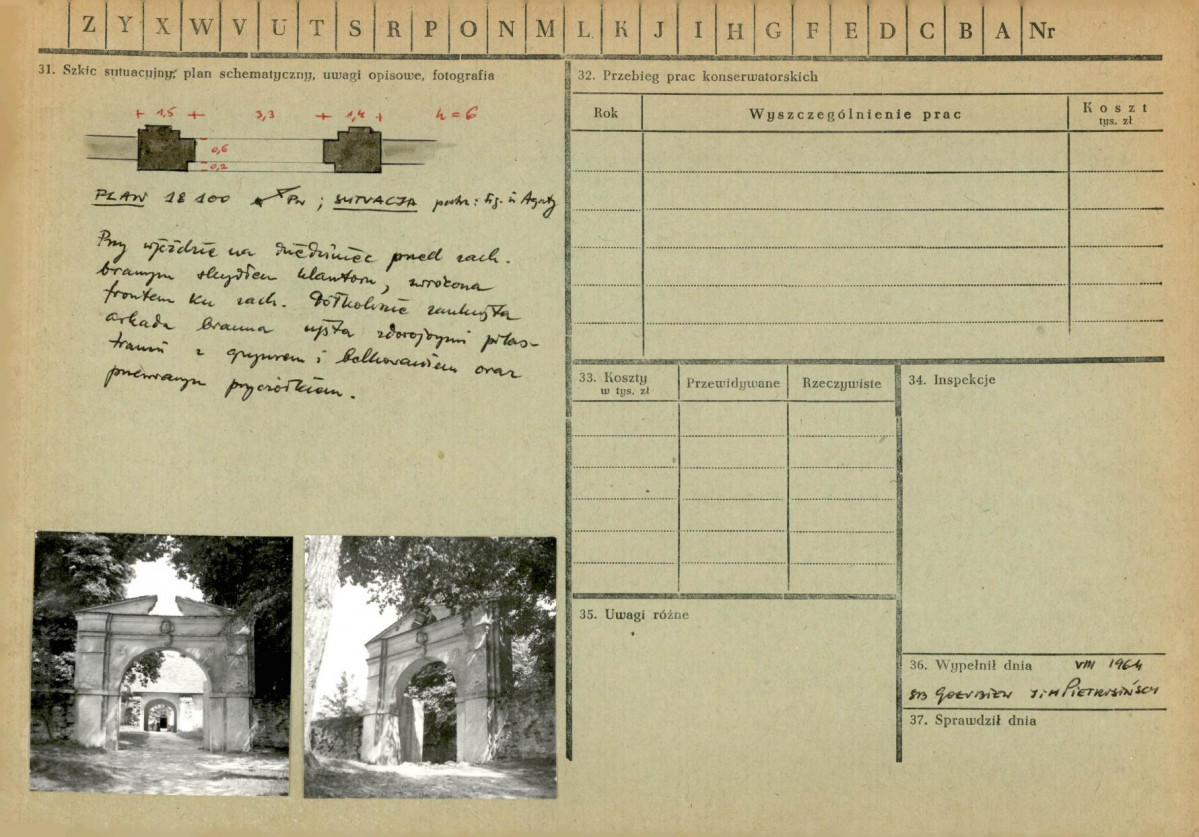 Z Y X W V U T S R P O N M L K J I H G F E D C B A Nr
31. Szkic sytuacyjny, plan schematyczny, uwagi opisowe, fotografia
1,5 3,3 1,4 h = 6
0,6
0,2
PLAN 1:100 ; SYTUACJA patrz: fig. św Agaty
Przy wjeździe na dziedziniec przed zach.
bramnym skrzydłem klasztoru, zwrócona
frontem ku zach. Półkoliście zamknięta
arkada bramna ujęta zdwojonymi pilas-
trami z gzymsem i belkowaniem oraz
przerwanym przyczółkiem.
32. Przebieg prac konserwatorskich
Rok Wyszczególnienie prac Koszt
tys. zł
33. Koszty
w tys. zł
Przewidywane Rzeczywiste
34. Inspekcje
35. Uwagi różne
36. Wypełnił dnia VIII 1964
37. Sprawdził dnia